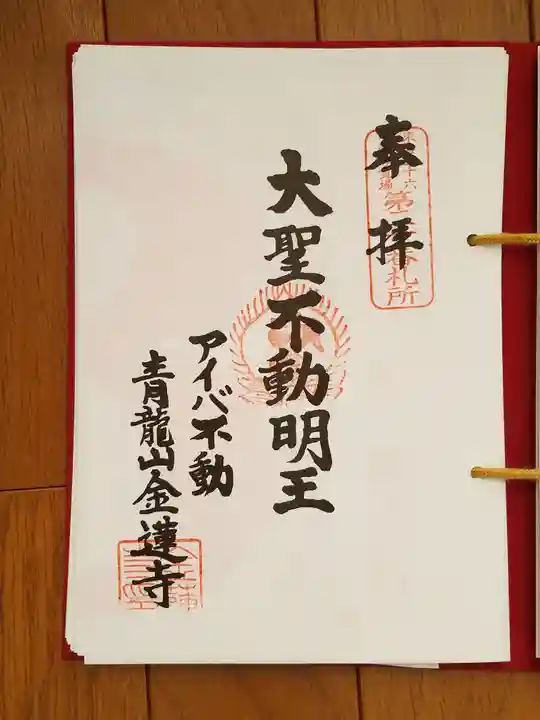 奉拝
大聖不動明王
アイバ不動
青龍山金蓮寺
札所